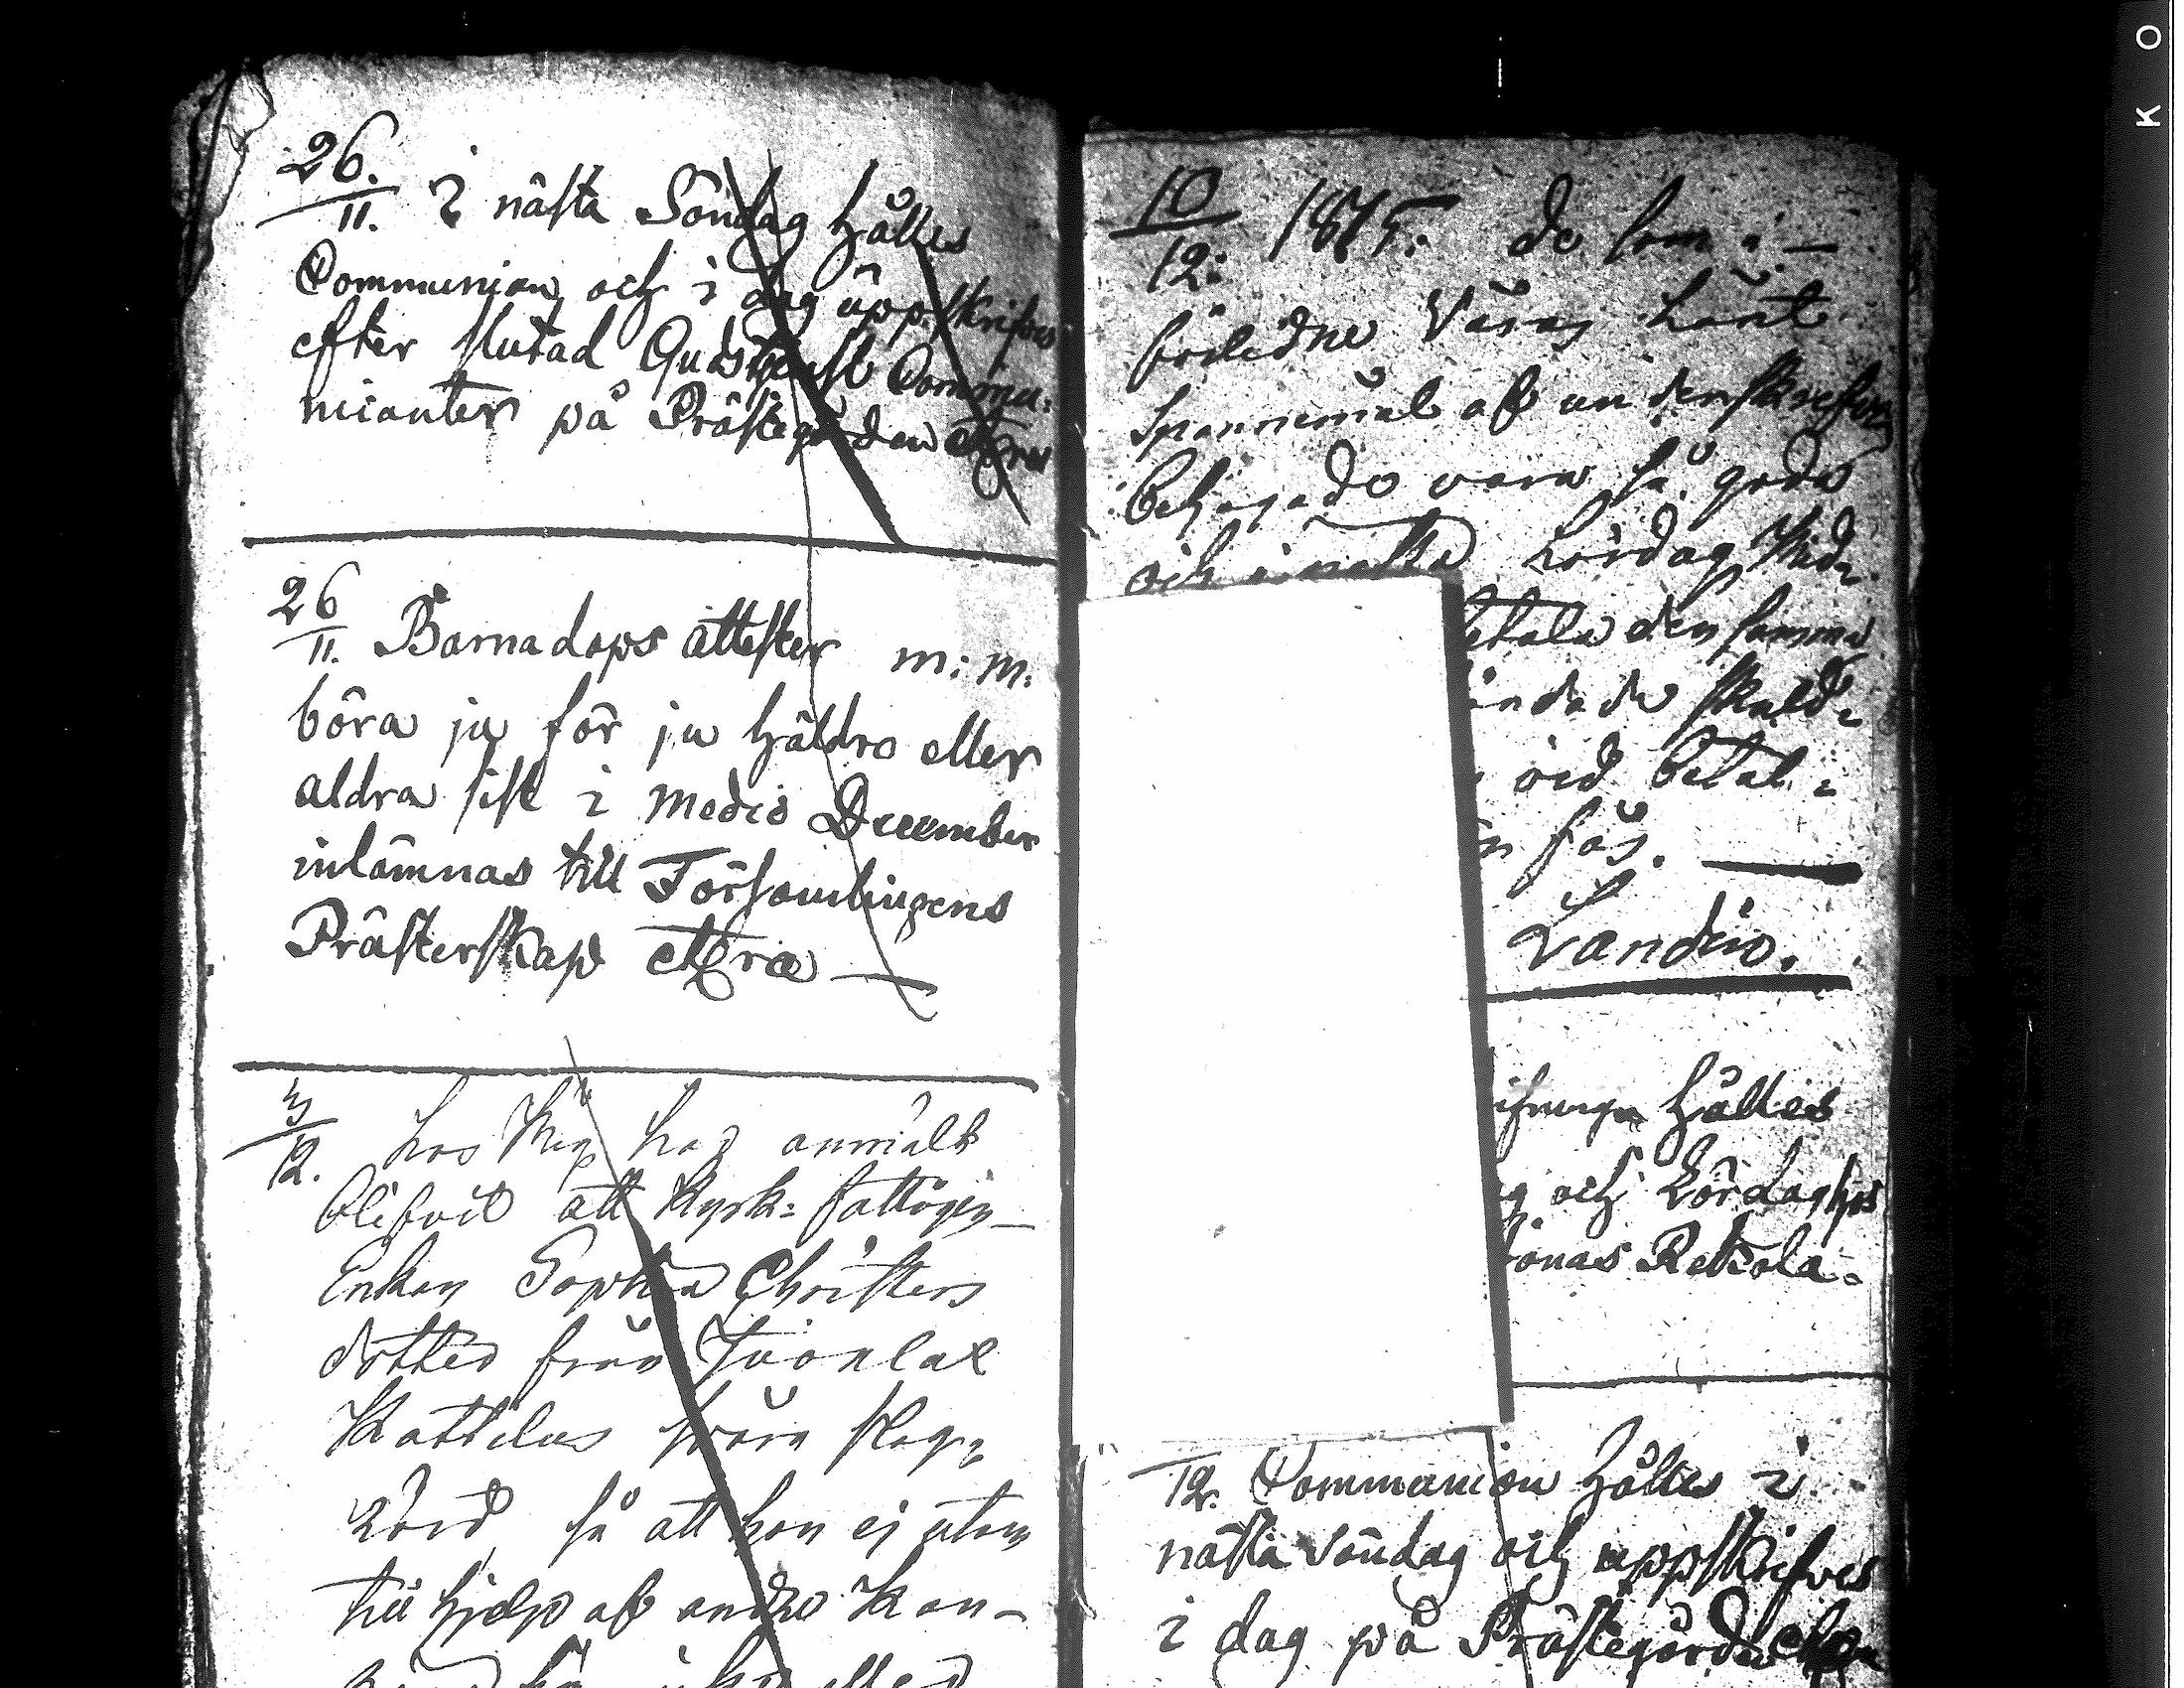 26.
11. I nästa Söndag hålles
Communion och i dag uppskrifves
efter slutad Gudstjenst Commu:
nicanter på Prästegården etc
26
11. Barnadops attester m: m.
böra ju för ju häldre eller
aldra sist i medio December
inlämnas till Församlingens
Prästerskap
3
12. hos mig har anmält
blifvit att Kyrk= fattigen
Enkan Sophia Christers
dotter från Tvorlax
Kattelus svåra
så att hon ej utom
till hjelp af andre kan-
10
12: 1875. De som i —
förledne Våras lånt
Spannemål af undenskrefven
behagade vara så goda
och i nästa Lördag
betala den samma
skuld=
vid betal=
fås.
Landén.
hålles
och Lördag hos
12. Communion hålles i
nästa Söndag och uppskrifves
i dag på Prästegården
K O